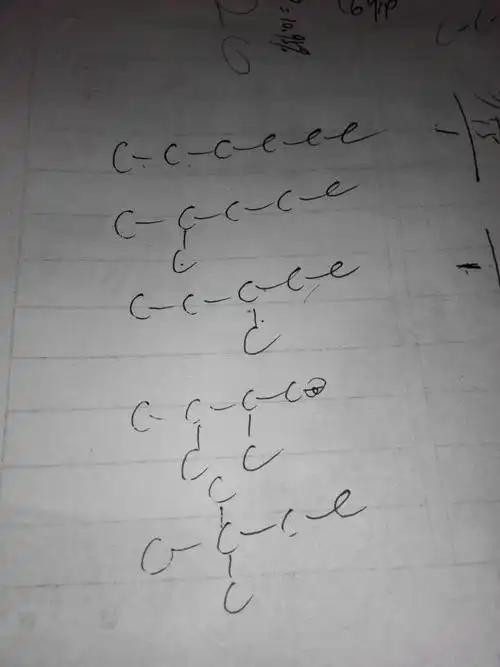 C-C-C-C-C-C
C-C-C-C-C
C
C-C-C-C-C
C
C-C-C-C
C C
C
C-C-C-C
C